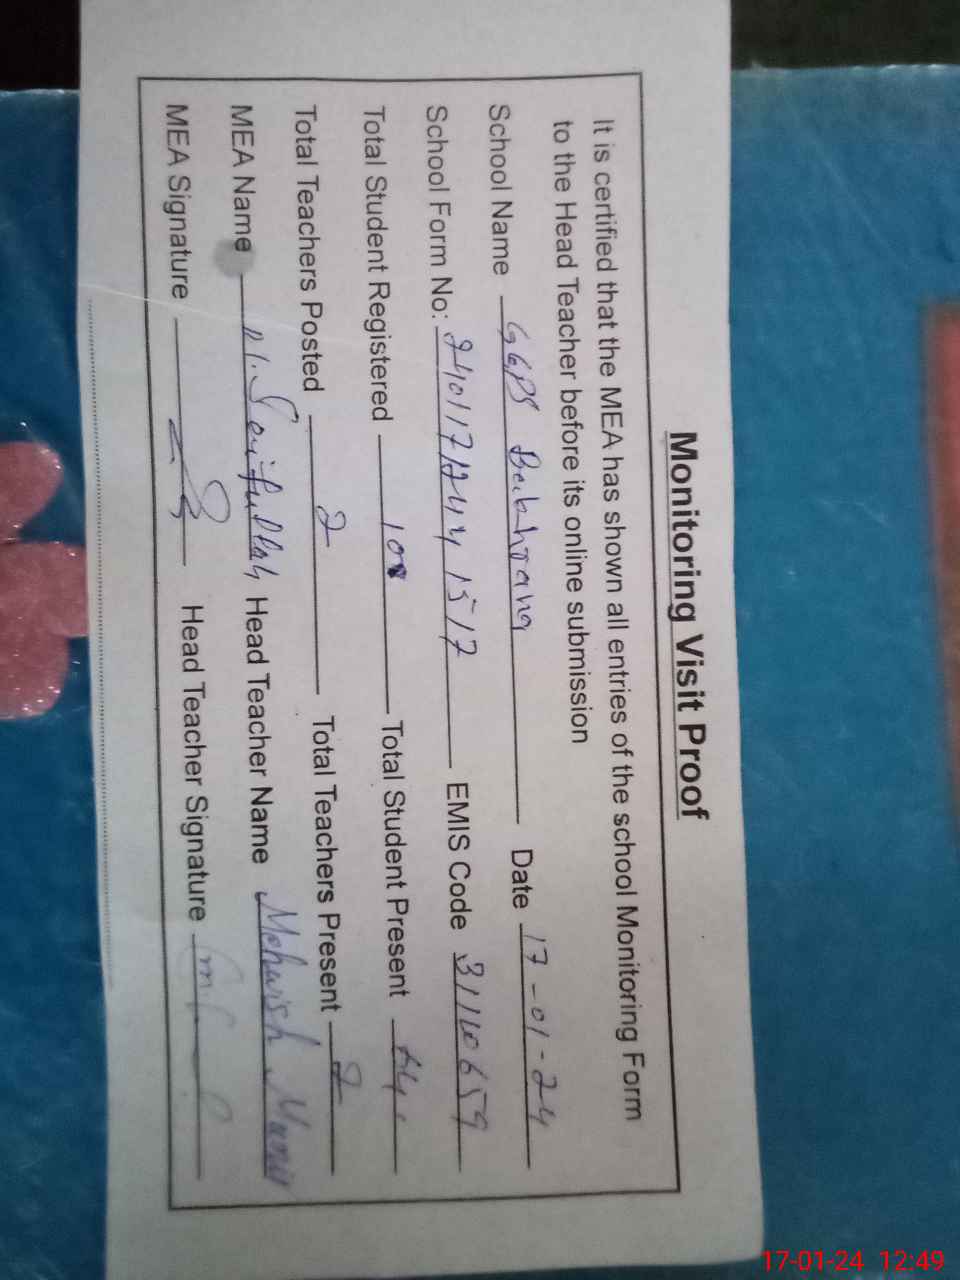 Monitoring Visit Proof
It is certified that the MEA has shown all entries of the school Monitoring Form
to the Head Teacher before its online submission
School Name GGPS Date 17-01-24
School Form No: EMIS Code 31110659
Total Student Registered 108 Total Student Present
Total Teachers Posted 2 Total Teachers Present 2
MEA Name M. Saifullah Head Teacher Name Mehwish
MEA Signature Head Teacher Signature
17-01-24 12:49